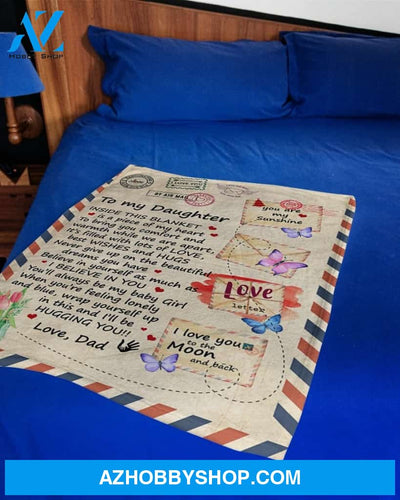 AZ
Hobby Shop
BY AIR MAIL
To my Daughter
INSIDE THIS BLANKET
is a piece of my heart
to bring you a smile and
warmth while we are apart.
It's filled with lots of LOVE,
best WISHES and HUGS
Never give up on the beautiful
dreams you have and
Believe in yourself as much as
I BELIEVE IN YOU
You'll always be my baby Girl
when you're feeling lonely
and blue, wrap yourself up
in this and I'll be
HUGGING YOU!!
Love, Dad
you are
my
Sunshine
Love
letter
I love you
to the
Moon
and back
AZHOBBYSHOP.COM